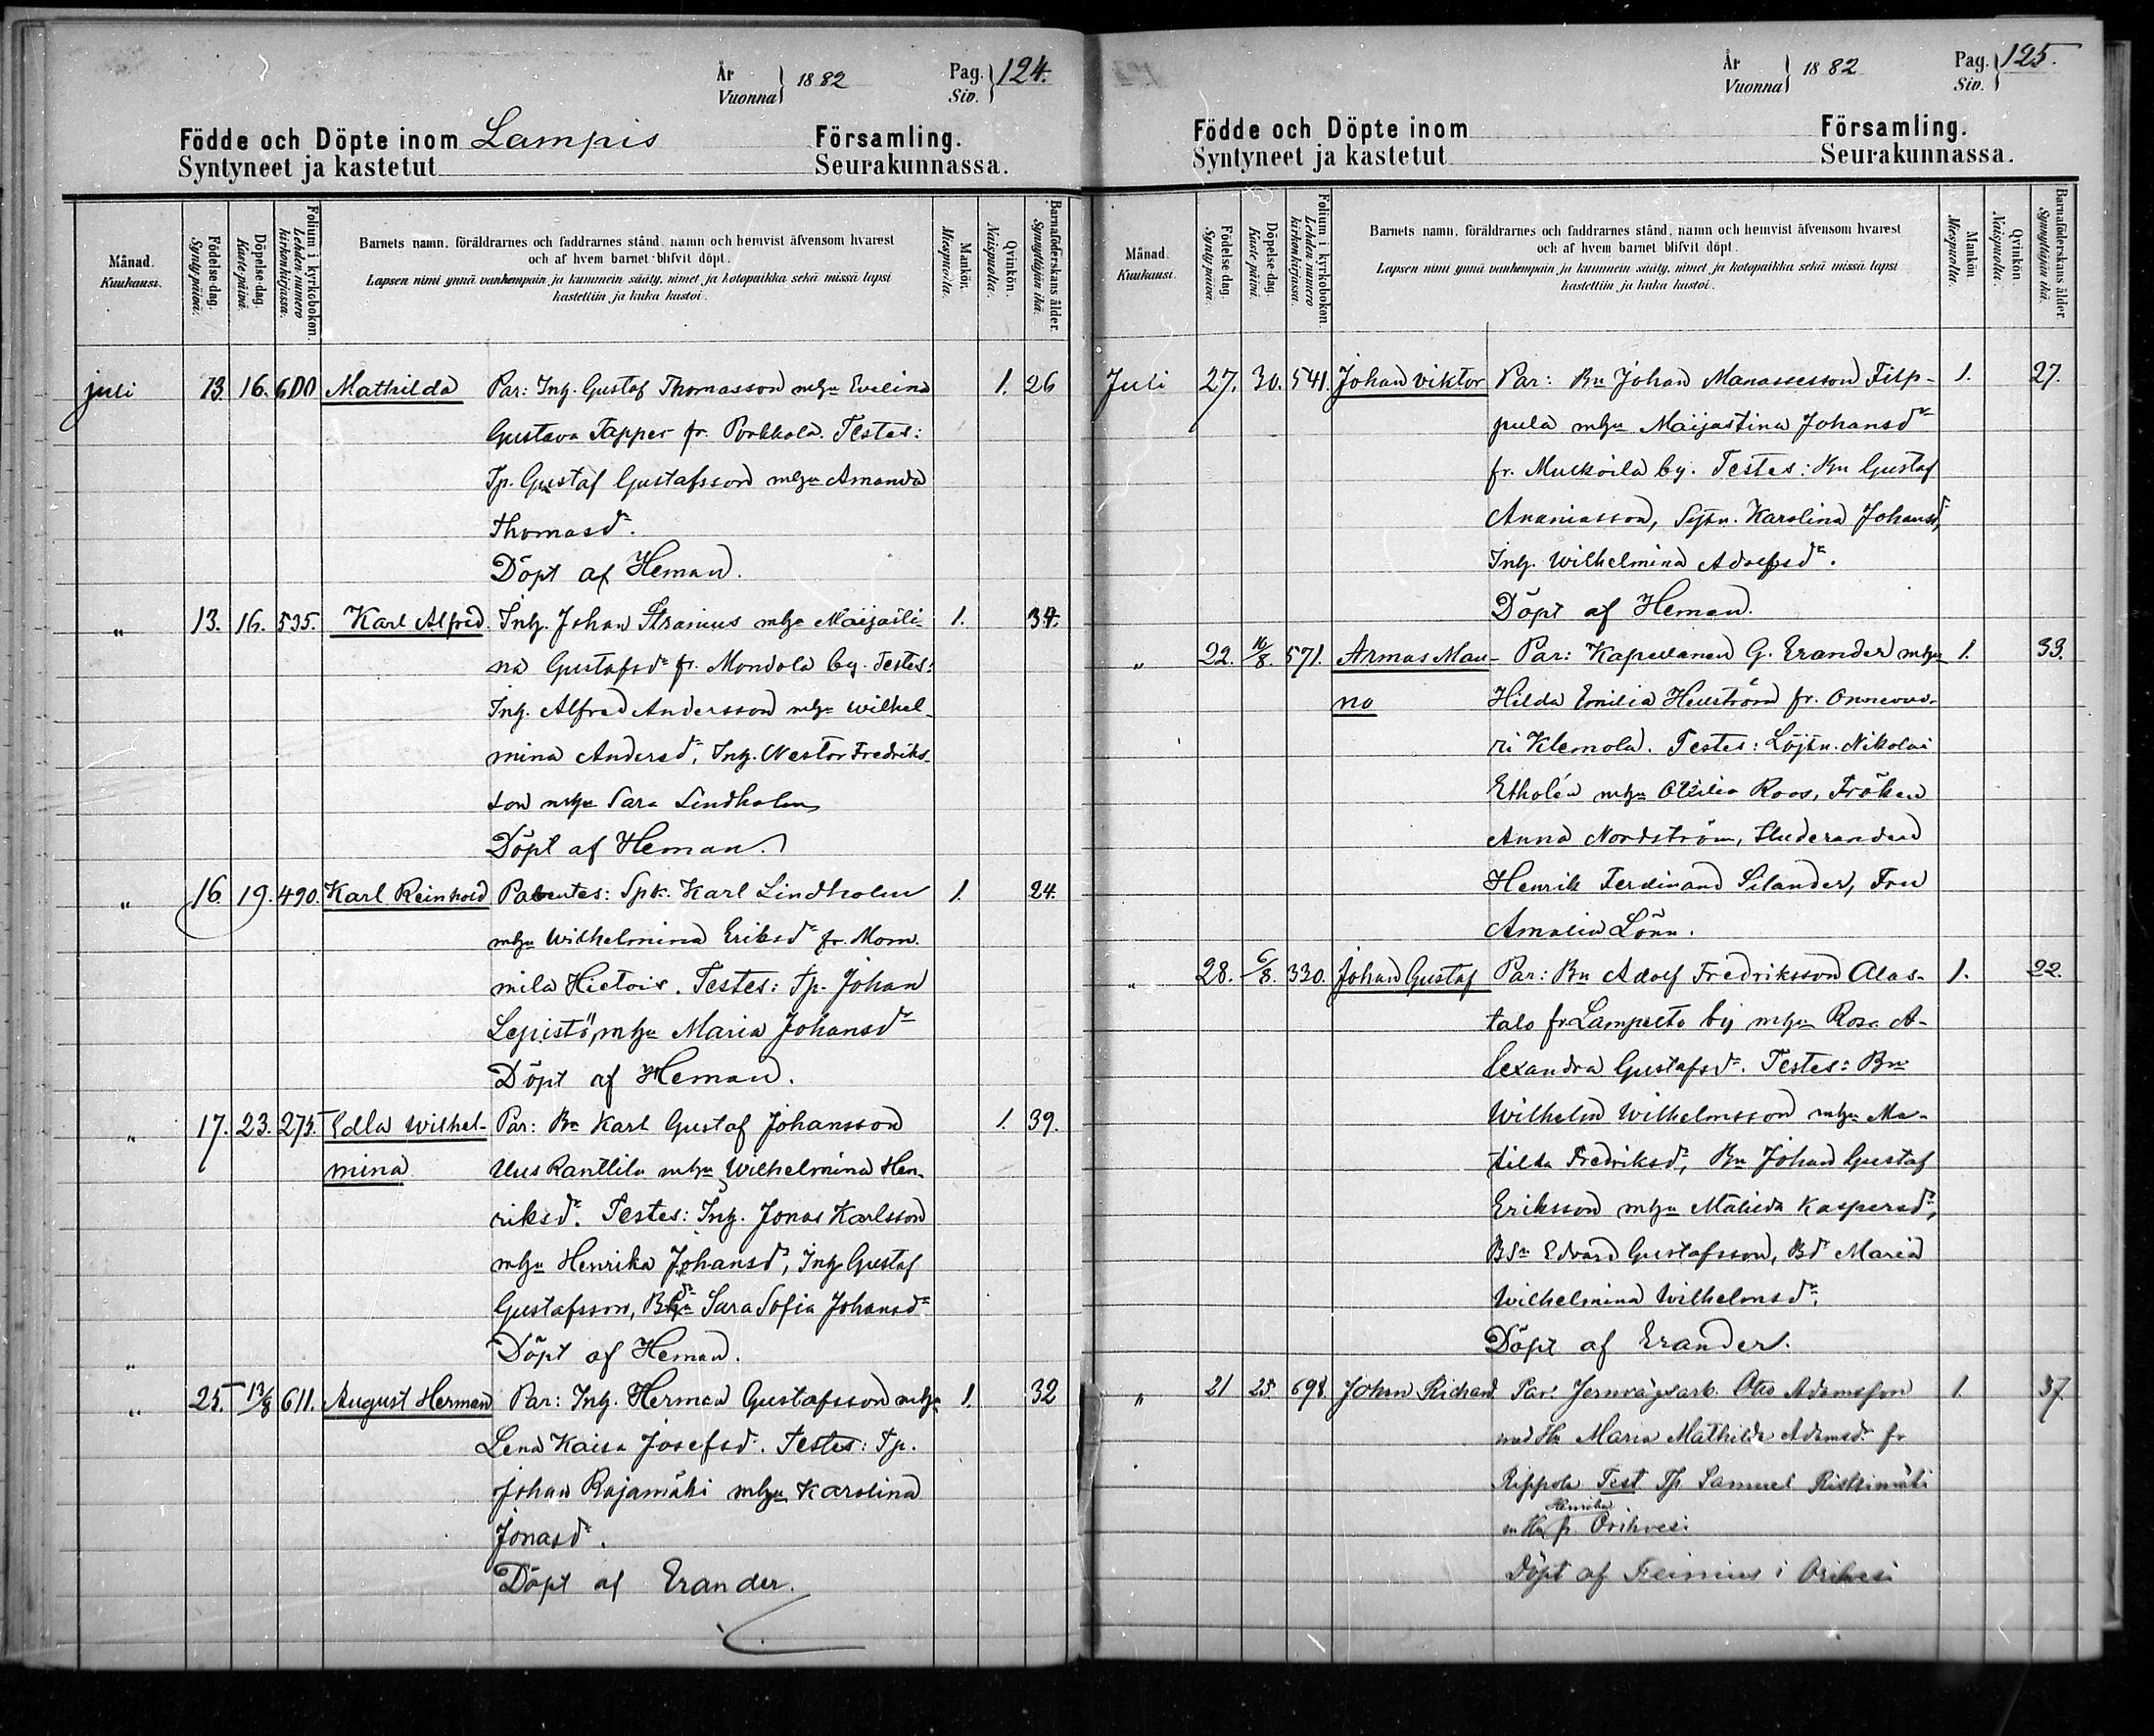 År
Vuonna } 1882
Pag.
Siv. } 124.
Födde och Döpte inom Lampis Församling.
Syntyneet ja kastetut Seurakunnassa.
Månad. Kuukausi.
Födelse-dag. Synty päivä.
Döpelse-dag. Kaste päivä.
Folium i kyrkobokon. Lehden numero kirkonkirjassa.
Barnets namn, föräldrarnes och faddrarnes stånd, namn och hemvist äfvensom hvarest
och af hvem barnet blifvit döpt.
Lapsen nimi ynnä vanhempain ja kummein sääty, nimet ja kotopaikka sekä missä lapsi
kastettiin ja kuka kastoi.
Mankön. Miespuolta.
Qvinkön. Naispuolta.
Barnaföderskans ålder. Synnyttäjän ikä.
juli 13. 16. 600 Mathilda Par: Inh. Gustaf Thomasson mhu Evelina 1. 26
Gustava Tapper fr. Porkkola. Testes:
Tp. Gustaf Gustafsson mhu Amanda
Thomasdr.
Döpt af Heman.
" 13. 16. 535. Karl Alfred. Inh. Johan Stranius mhu Maijasti- 1. 34.
na Gustafsdr fr. Mondola by. Testes:
Inh. Alfred Andersson mhu Wilhel-
mina Andersdr, Inh. Nestor Fredriks-
son mhu Sara Lindholm
Döpt af Heman.
" 16. 19. 490. Karl Reinhold Parentes: Spk. Karl Lindholm 1. 24.
mhu Wilhelmina Eriksdr fr. Mom-
mila Hietois. Testes: Tp. Johan
Lepistö, mhu Maria Johansdr
Döpt af Heman.
" 17. 23. 275. Edla Wilhel- Par: Bn Karl Gustaf Johansson 1. 39.
mina Uus Ranttila mhu Wilhelmina Hen-
riksdr. Testes: Inh. Jonas Karlsson
mhu Henrika Johansdr, Inh Gustaf
Gustafsson, Sara Sofia Johansdr
" Döpt af Heman.
" 25. 13/8 611. August Herman Par: Inh. Herman Gustafsson mhu 1. 32
Lena Kaisa Josefsdr. Testes: Tp.
Johan Rajamäki mhu Karolina
Jonasdr.
Döpt af Erander.
År
Vuonna } 1882
Pag.
Siv. } 125.
Födde och Döpte inom Församling.
Syntyneet ja kastetut Seurakunnassa.
Månad. Kuukausi.
Födelse-dag. Synty päivä.
Döpelse-dag. Kaste päivä.
Folium i kyrkobokon. Lehden numero kirkonkirjassa.
Barnets namn, föräldrarnes och faddrarnes stånd, namn och hemvist äfvensom hvarest
och af hvem barnet blifvit döpt.
Lapsen nimi ynnä vanhempain ja kummein sääty, nimet ja kotopaikka sekä missä lapsi
kastettiin ja kuka kastoi.
Mankön. Miespuolta.
Qvinkön. Naispuolta.
Barnaföderskans ålder. Synnyttäjän ikä.
Juli 27. 30. 541. Johan Viktor Par: Bn Johan Manassesson Filp- 1. 27.
pula mhu Maijastina Johansdr
fr. Mulkoila by. Testes: Bn Gustaf
Ananiasson, Karolina Johansdr,
Inh. Wilhelmina Adolfsdr.
Döpt af Heman.
" 22. 16/8 571. Armas Mau- Par: Kapellanen G. Erander mhu 1. 33.
no Hilda Emilia Hellström fr. Onnenvuo-
ri Klemola. Testes: Löjtn. Nikolai
Etholén mhu Roos, Fröken
Anna Nordström, Studeranden
Henrik Ferdinand Silander, Fru
Amalia Lönn.
" 28. 6/8. 330. Johan Gustaf Par: Bn Adolf Fredriksson Alas- 1. 22.
talo fr. Lampelto by mhu Rosa A-
lexandra Gustafsdr. Testes: Bn
Wilhelm Wilhelmsson mhu Ma-
tilda Fredriksdr, Bn Johan Gustaf
Eriksson mhu Matilda Kaspersdr,
BSn Edvard Gustafsson, Bdr Maria
Wilhelmina Wilhelmsdr.
Döpt af Erander.
" 21 25. 698 Johan Richard Par: Jernvägsarb. Otto Adamsson 1. 37.
med Hu Maria Mathilda Adamsdr fr
Rippola Test. Tp. Samuel Ristinmäki
m Hu Henrika fr. Orihvesi
Döpt af i Orihvesi